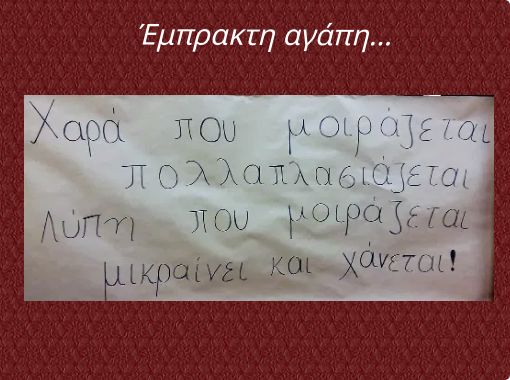 Έμπρακτη αγάπη...
Χαρά που μοιράζεται
πολλαπλασιάζεται
Λύπη που μοιράζεται
μικραίνει και χάνεται!